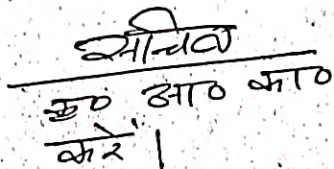 सचिव
कृ० आ० का०
करें।